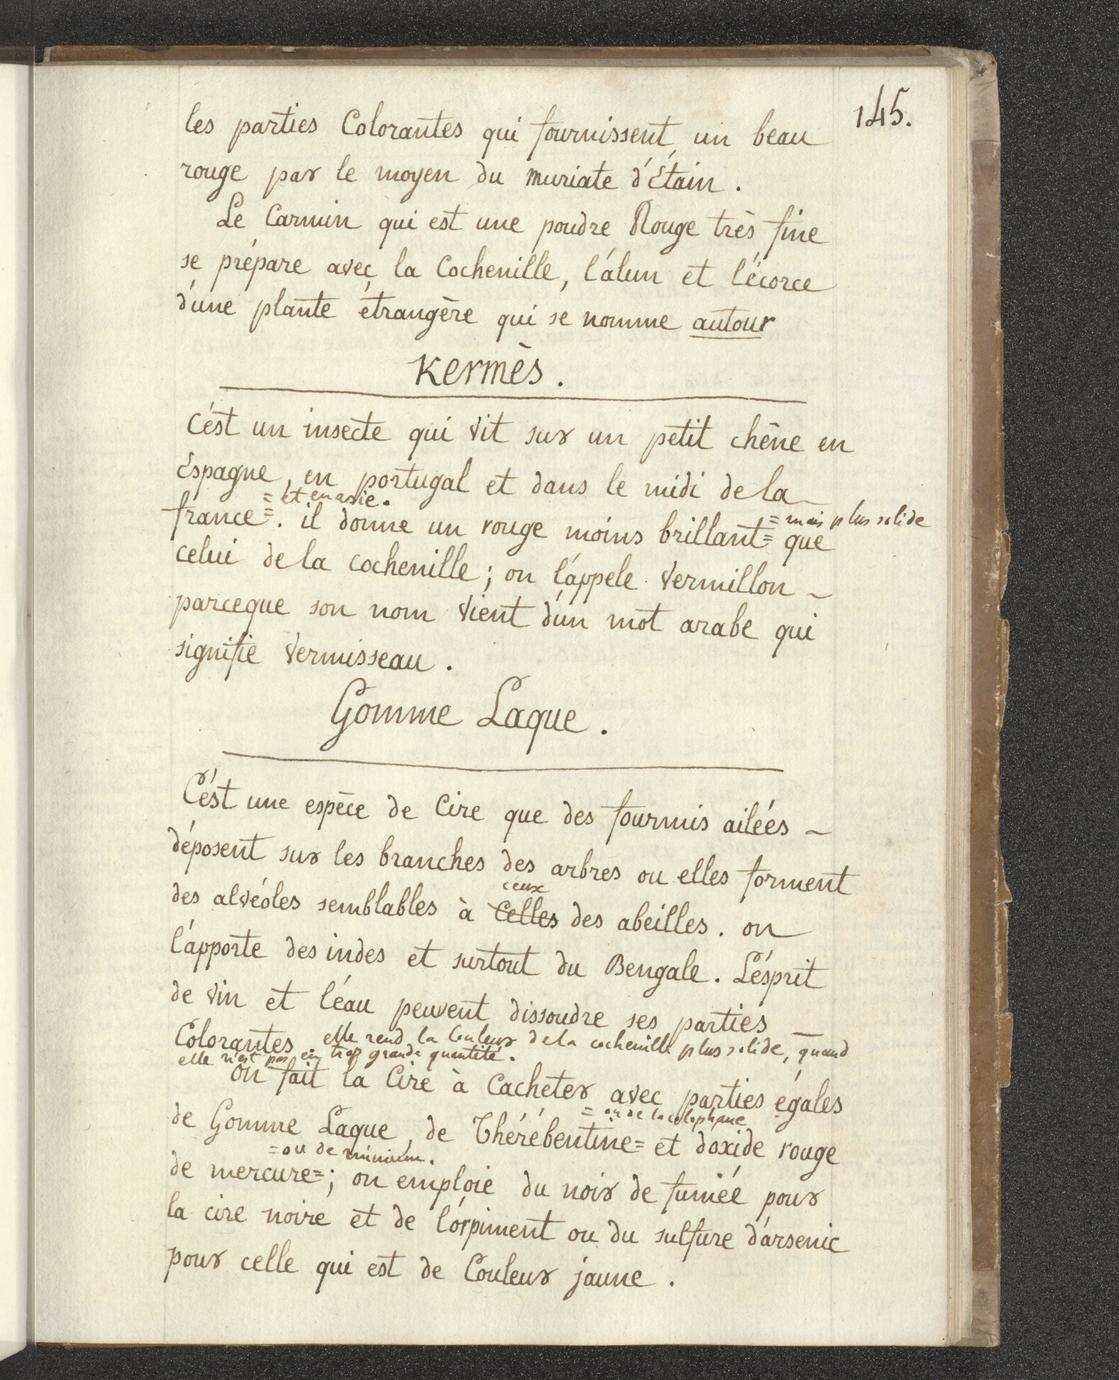 145.
les parties Colorantes qui fournissent un beau
rouge par le moyen du muriate d'Étain.
Le Carmin qui est une poudre Rouge très fine
se prépare avec la Cochenille, l'alun et l'écorce
d'une plante étrangère qui se nomme autour
Kermès.
C'est un insecte qui vit sur un petit chêne en
Espagne, en portugal et dans le midi de la
= et en asie.
france =. il donne un rouge moins brillant = que
= mais plus solide
celui de la cochenille; on l'appele vermillon
parceque son nom vient d'un mot arabe qui
signifie vermisseau.
Gomme Laque.
C'est une espèce de Cire que des fourmis ailées
déposent sur les branches des arbres ou elles forment
ceux
des alvéoles semblables à celles des abeilles. on
l'apporte des indes et surtout du Bengale. L'esprit
de vin et l'eau peuvent dissoudre ses parties
Colorantes elle rend la Couleur de la cochenille plus solide, quand
elle n'est pas en trop grande quantité.
On fait la Cire à Cacheter avec parties égales
= ou de la colophane
de Gomme Laque, de Thérébentine = et d'oxide rouge
= ou de minium.
de mercure =; on emploie du noir de fumée pour
la cire noire et de l'orpiment ou du sulfure d'arsenic
pour celle qui est de Couleur jaune.